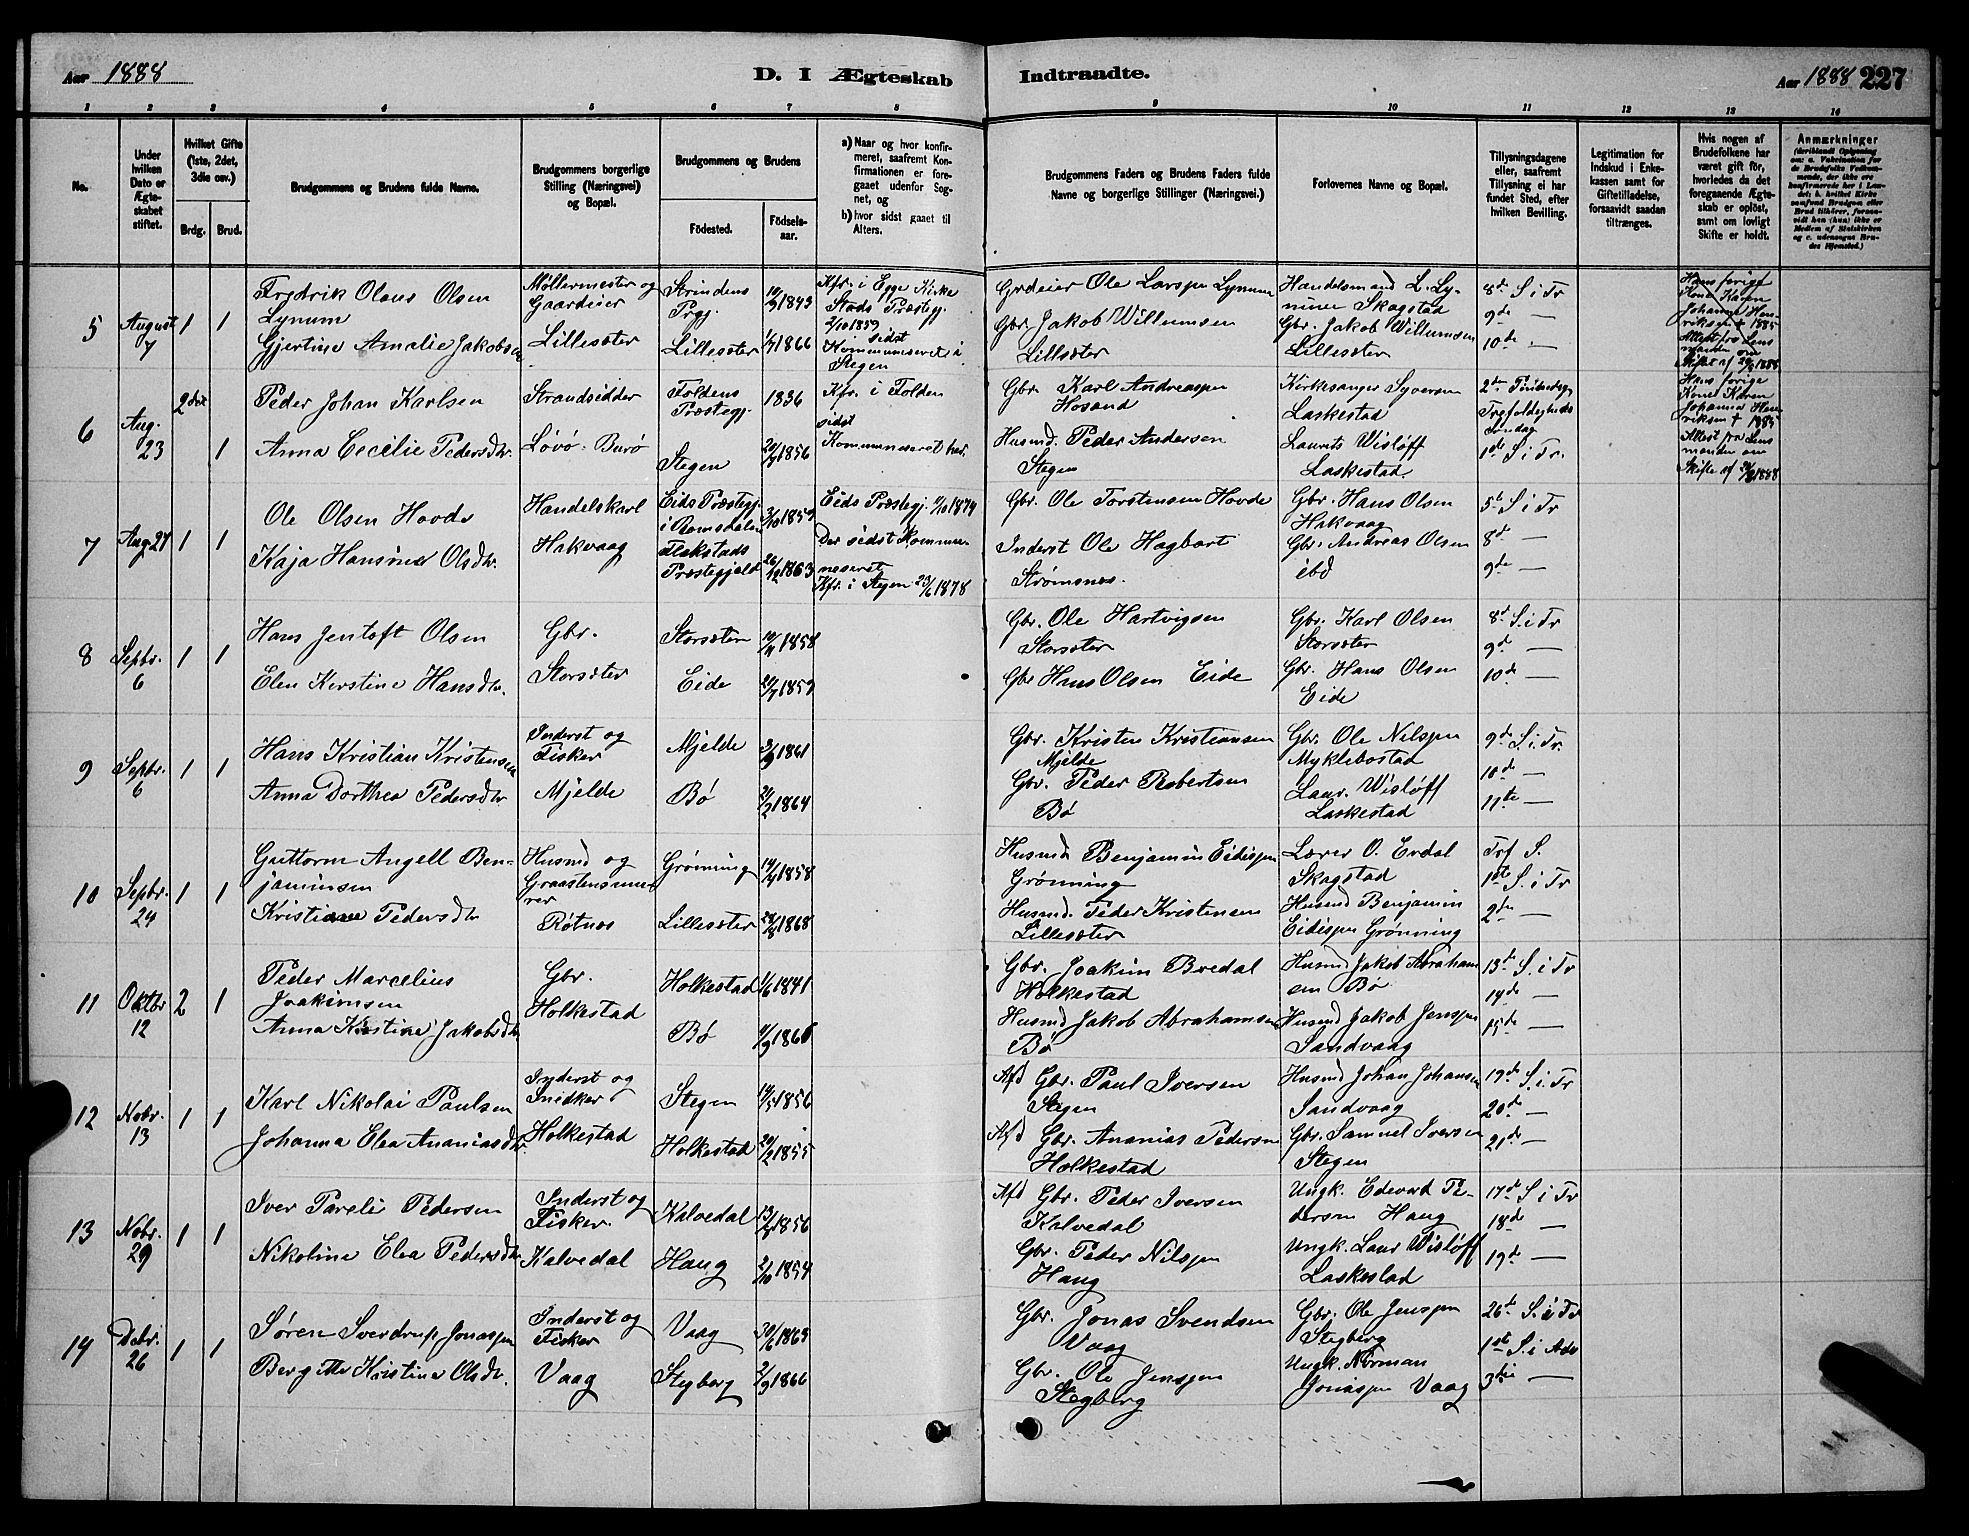 Aar 1888
D. I Ægteskab
Indtraadte.
Aar 1888 227
1 2 3 4 5 6 7 8 9 10 11 12 13 14
No.
Under
hvilken
Dato er
Ægte-
skabet
stiftet.
Hvilket Gifte
(1ste, 2det,
3die osv.)
Brdg. Brud.
Brudgommens og Brudens fulde Navne.
Brudgommens borgerlige
Stilling (Næringsvei)
og Bopæl.
Brudgommens og Brudens
Fødested.
Fødsels-
aar.
a) Naar og hvor konfir-
meret, saafremt Kon-
firmationen er fore-
gaaet udenfor Sog-
net, og
b) hvor sidst gaaet til
Alters.
Brudgommens Faders og Brudens Faders fulde
Navne og borgerlige Stillinger (Næringsvei.)
Forlovernes Navne og Bopæl.
Tillysningsdagene
eller, saafremt
Tillysning ei har
fundet Sted, efter
hvilken Bevilling.
Legitimation for
Indskud i Enke-
kassen samt for
Giftetilladelse,
forsaavidt saadan
tiltrænges.
Hvis nogen af
Brudefolkene har
været gift før,
hvorledes da det
foregaaende Ægte-
skab er opløst,
samt om lovligt
Skifte er holdt.
Anmærkninger
(deriblandt Oplysning
om: a. Vakcination for
de Brudefolks Vedkom-
mende, der ikke ere
konfirmerede her i Lan-
det; b. hvilket Kirke
samfund Brudgom eller
Brud tilhører, forsaa-
vidt han (hun) ikke er
Medlem af Statskirken
og c. udensogns Bru-
des Hjemsted.)
5
August
7
1 1
Fredrik Olaus Olsen
Lynum
Gjertine Amalie Jakobsen
Møllermester og
Gaardeier
Lillesæter
Strindens
Prgj.
Lillesæter
10/9 1843
1/7 1866
Kfr. i Egge Kirke
Stods Præstegj.
2/10 1859
sidst
Kommuniseret i
Stegen
Grdeier Ole Larssen Lynum
Gbr. Jakob Willumsen
Lillesæter
Handelsmand L. Ly-
num Skagstad
Gbr. Jakob Willumsen
Lillesæter
8de S i Tr
9de —
10de —
Hans forige
Kone Karen
Johanna Hen-
riksen † 1885
Attest fra Lens
manden om
Skifte af 20/8 1888
6
Aug.
23
2den
1
Peder Johan Karlsen
Anna Cecilie Pedersdtr.
Strandsidder
Løvø. Burø
Foldens
Præstegj.
Stegen
1836
20/7 1856
Kfr. i Folden
sidst
Kommuniseret her.
Gbr. Karl Andreassen
Hosand
Husmd. Peder Andersen
Stegen
Kirkesanger Syversen
Laskestad
Laurits Wisløff
Laskestad.
2den Pintsedag
Trefoldigheds
Søndag
1ste S i Tr.
Hans forige
Kone Karen
Johanna Hen-
riksen † 1885
Attest fra Lens
manden om
Skifte af 20/8 1888
7
Aug 27
1 1
Ole Olsen Hovde
Kaja Hansine Olsdtr.
Handelskarl
Hakvaag
Eids Præstegj.
i Romsdalen
Flakstads
Præstegjeld
3/10 1859
26/12 1863
Eids Præstegj. 11/10 1874
Der sidst Kommu-
niseret
Kfr. i Stegen 23/6 1878
Gbr. Ole Torstensen Hovde
Inderst Ole Hagbart
Strømsnes.
Gbr. Hans Olsen
Hakvaag
Gbr. Andreas Olsen
ibd
5te S i Tr
8de —
9de —
8
Sepbr.
6
1 1
Hans Jentoft Olsen
Elen Kerstine Hansdtr.
Gbr.
Storsæter
Storsæter
Eide
10/11 1858
20/7 1859
Gbr. Ole Hartvigsen
Storsæter
Gbr Hans Olsen Eide
Gbr. Karl Olsen
Storsæter
Gbr. Hans Olsen
Eide
8de S i Tr
9de —
10de —
9
Sepbr.
6
1 1
Hans Kristian Kristensen
Anna Dorthea Pedersdtr
Inderst og
Fisker
Mjelde
Mjelde
Bø
3/9 1861
21/2 1864
Gbr. Kristen Kristiansen
Mjelde
Gbr. Peder Robertsen
Bø
Gbr. Ole Nilssen
Myklebostad
Laur. Wisløff
Laskestad
9de S. i Tr.
10de —
11te —
10
Sepbr.
24
1 1
Guttorm Angell Ben-
jaminsen
Kristiane Pedersdtr
Husmd og
Graastensmu-
rer
Røtnes
Grønning
Lillesæter
14/4 1858
28/8 1868
Husmd Benjamin Eidissen
Grønning
Husmd. Peder Kristensen
Lillesæter
Lærer O. Evdal
Skagstad
Husmd Benjamin
Eidissen Grønning
Trf S.
1ste S. i Tr
2den —
11
Oktbr
12
2 1
Peder Marcelius
Joakimsen
Anna Kristine Jakobsdtr
Gbr.
Holkestad
Holkestad
Bø
1/6 1841
11/9 1861
Gbr. Joakim Bredal
Holkestad
Husmd Jakob Abrahamsen
Bø
Husmd Jakob Abraham
sen Bø
Husmd Jakob Jenssen
Sandvaag
13de S. i Tr
14de —
15de —
12
Nobr.
13
1 1
Karl Nikolai Paulsen
Johanna Elea Ananiasdtr.
Inderst og
Snidker
Holkestad
Stegen
Holkestad
14/5 1856
20/2 1855
Afd Gbr. Paul Iversen
Stegen
Afd Gbr. Ananias Pedersen
Holkestad
Husmd Johan Johansen
Sandvaag
Gbr. Samuel Iversen
Stegen
19de S. i Tr
20de —
21de —
13
Nobr.
29
1 1
Iver Pareli Pedersen
Nikoline Elea Pedersdtr
Inderst og
Fisker
Kalvedal
Kalvedal
Haug
13/4 1856
2/10 1854
Afd Gbr. Peder Iversen
Kalvedal
Gbr. Peder Nilssen
Haug
Ungk. Edevard Pe-
dersen Haug
Ungk. Laur Wisløff
Laskestad
17de S i Tr
18de —
19de —
14
Debr.
26
1 1
Søren Sverdrup Jonassen
Bergithe Kristine Olsdtr.
Inderst og
Fisker
Vaag
Vaag
Stegberg
30/6 1863
2/9 1866
Gbr. Jonas Svendsen
Vaag
Gbr. Ole Jenssen
Stegberg
Gbr. Ole Jenssen
Stegberg
Ungk. Norman
Jonassen Vaag
26de S. i Tr
1ste S. i Adv
3die —